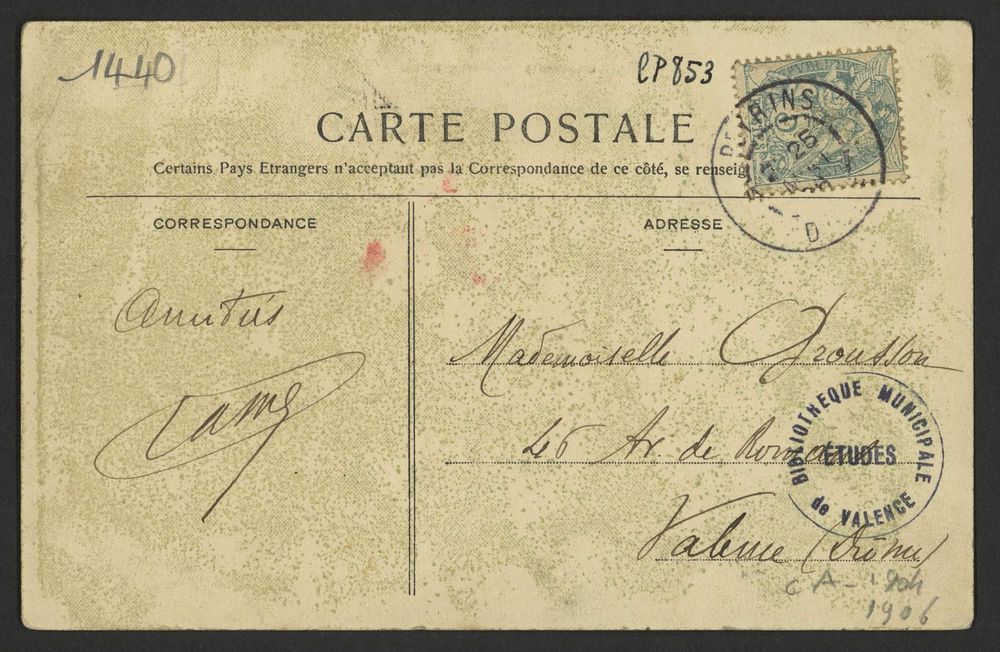 1440
CP853
CARTE POSTALE
Certains Pays Etrangers n'acceptant pas la Correspondance de ce côté, se renseig
PEYRINS
25
D
CORRESPONDANCE
ADRESSE
Amitiés
Mademoiselle Grousson
Av. de Romans
Valence (Drôme)
BIBLIOTHEQUE MUNICIPALE
ÉTUDES
de VALENCE
CA - 1904
1906